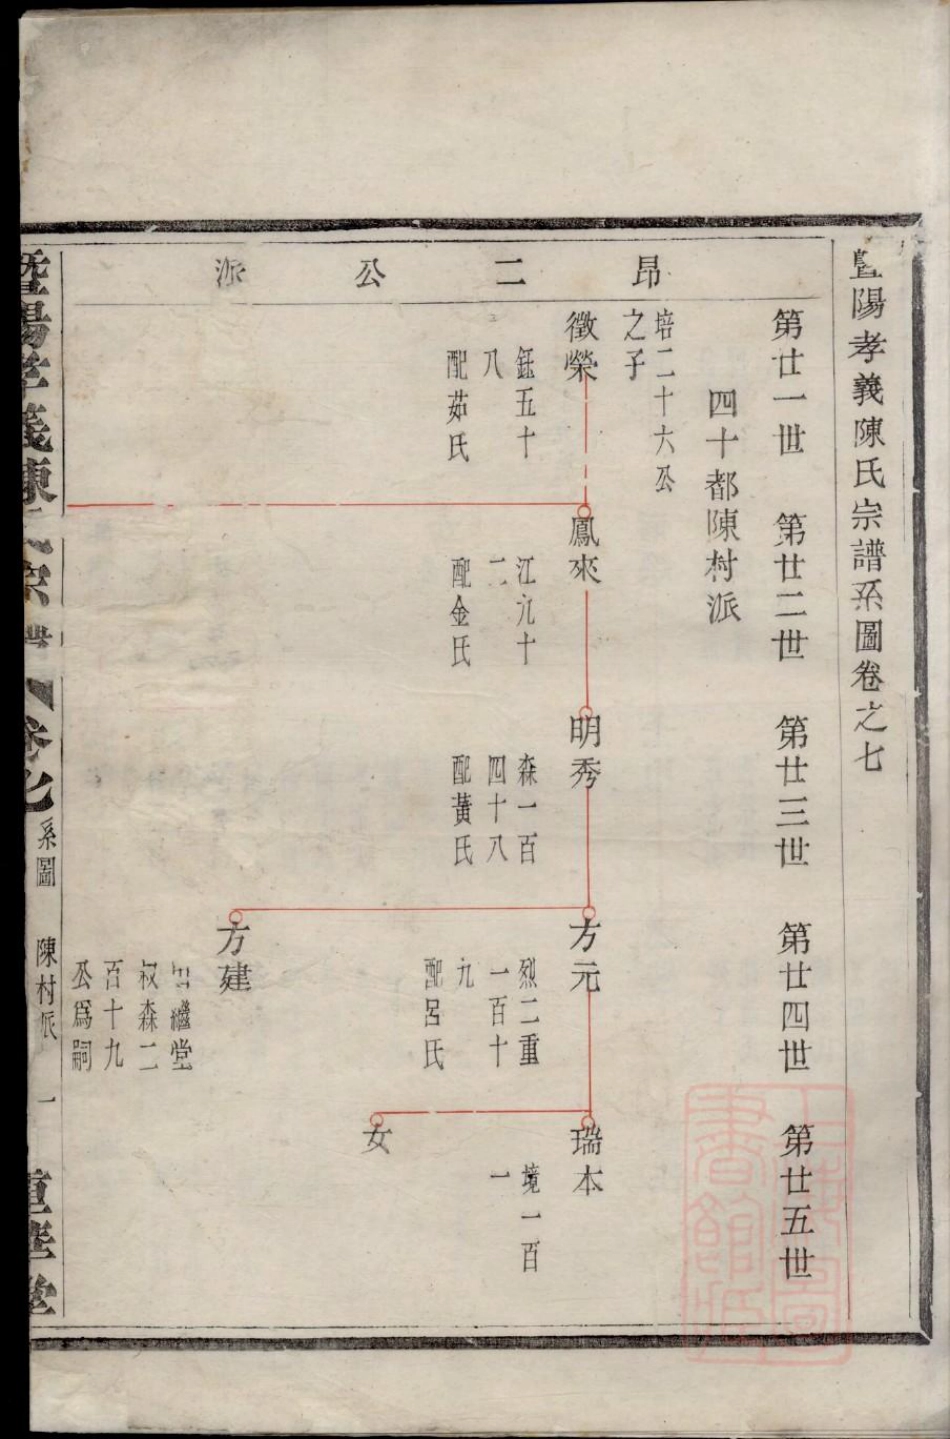 暨陽孝義陳氏宗譜系圖卷之七
昂二公派
第廿一世
第廿二世
第廿三世
第廿四世
第廿五世
四十都陳村派
培二十六公
之子
徵榮
鈺五十
八
配茹氏
鳳來
江九十
二
配金氏
明秀
森一百
四十八
配黃氏
方元
烈二重
一百十
九
配呂氏
方建
出繼堂
叔森二
百十九
公爲嗣
瑞本
境一百
一
女
暨陽孝義陳氏宗譜
卷七
系圖
陳村派
一